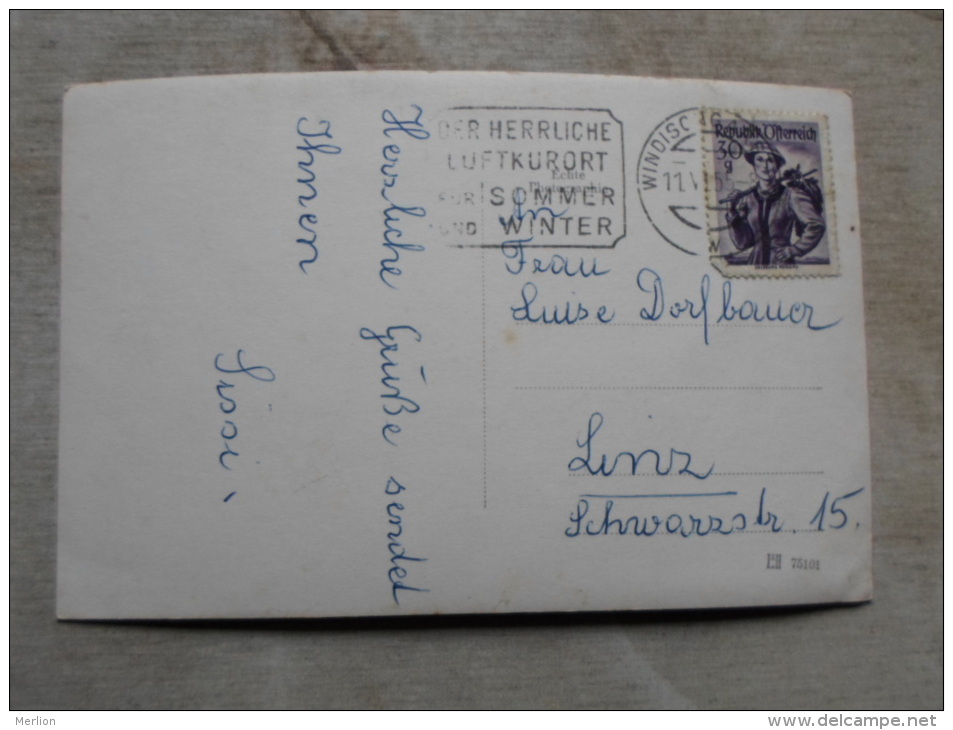 Herzliche Grüße sendet
Ihnen
Sissi.
DER HERRLICHE
LUFTKURORT
FÜR SOMMER
UND WINTER
Echte
Photographie
WINDISC
11.V
Republik Österreich
30
g
An
Frau
Luise Dorfbauer
Linz
Schwarzstr. 15.
75101
Merlion
www.delcampe.net